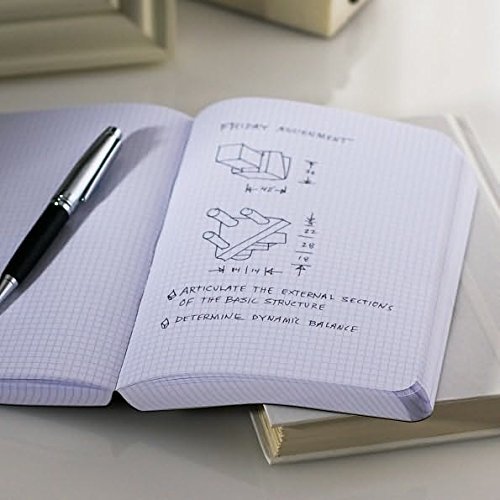 FRIDAY ASSIGNMENT
42
22
28
18
14 14
ARTICULATE THE EXTERNAL SECTIONS
OF THE BASIC STRUCTURE
DETERMINE DYNAMIC BALANCE